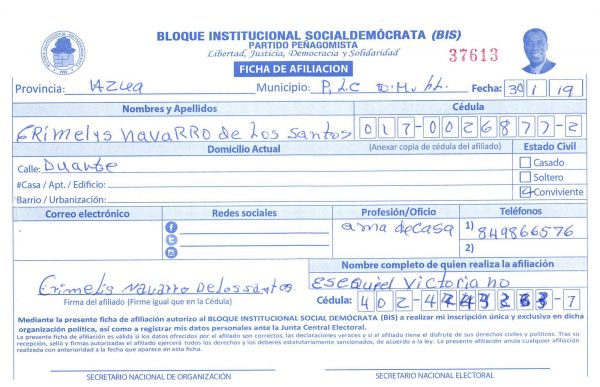 BLOQUE INSTITUCIONAL SOCIALDEMÓCRATA (BIS)
PARTIDO PEÑAGOMISTA
Libertad, Justicia, Democracia y Solidaridad
37613
FICHA DE AFILIACION
Provincia: AZUA Municipio: P.L.C D.M. Fecha: 30 1 19
Nombres y Apellidos Cédula
ERimelys navaRRO de Los Santos 017-0026877-2
Domicilio Actual (Anexar copia de cédula del afiliado) Estado Civil
Calle: Duarte
Casado
#Casa / Apt. / Edificio: Soltero
Barrio / Urbanización: Conviviente
Correo electrónico Redes sociales Profesión/Oficio Teléfonos
ama de casa 1) 849866576
2)
Nombre completo de quien realiza la afiliación
Erimelis Navarro Delossantos Esequiel Victoriano
Firma del afiliado (Firme igual que en la Cédula) Cédula: 402- -7
Mediante la presente ficha de afiliación autorizo al BLOQUE INSTITUCIONAL SOCIAL DEMÓCRATA (BIS) a realizar mi inscripción única y exclusiva en dicha
organización política, así como a registrar mis datos personales ante la Junta Central Electoral.
La presente ficha de afiliación es válida si los datos ofrecidos por el afiliado son correctos, las declaraciones veraces y si el afiliado tiene el disfrute de sus derechos civiles y políticos. Tras su
recepción, sello y firmas autorizadas el afiliado ejercerá todos los derechos y los deberes estatutariamente sancionados, de acuerdo a la ley. La presente afiliación anula cualquier afiliación
realizada con anterioridad a la fecha que aparece en esta ficha.
SECRETARIO NACIONAL DE ORGANIZACIÓN SECRETARIO NACIONAL ELECTORAL